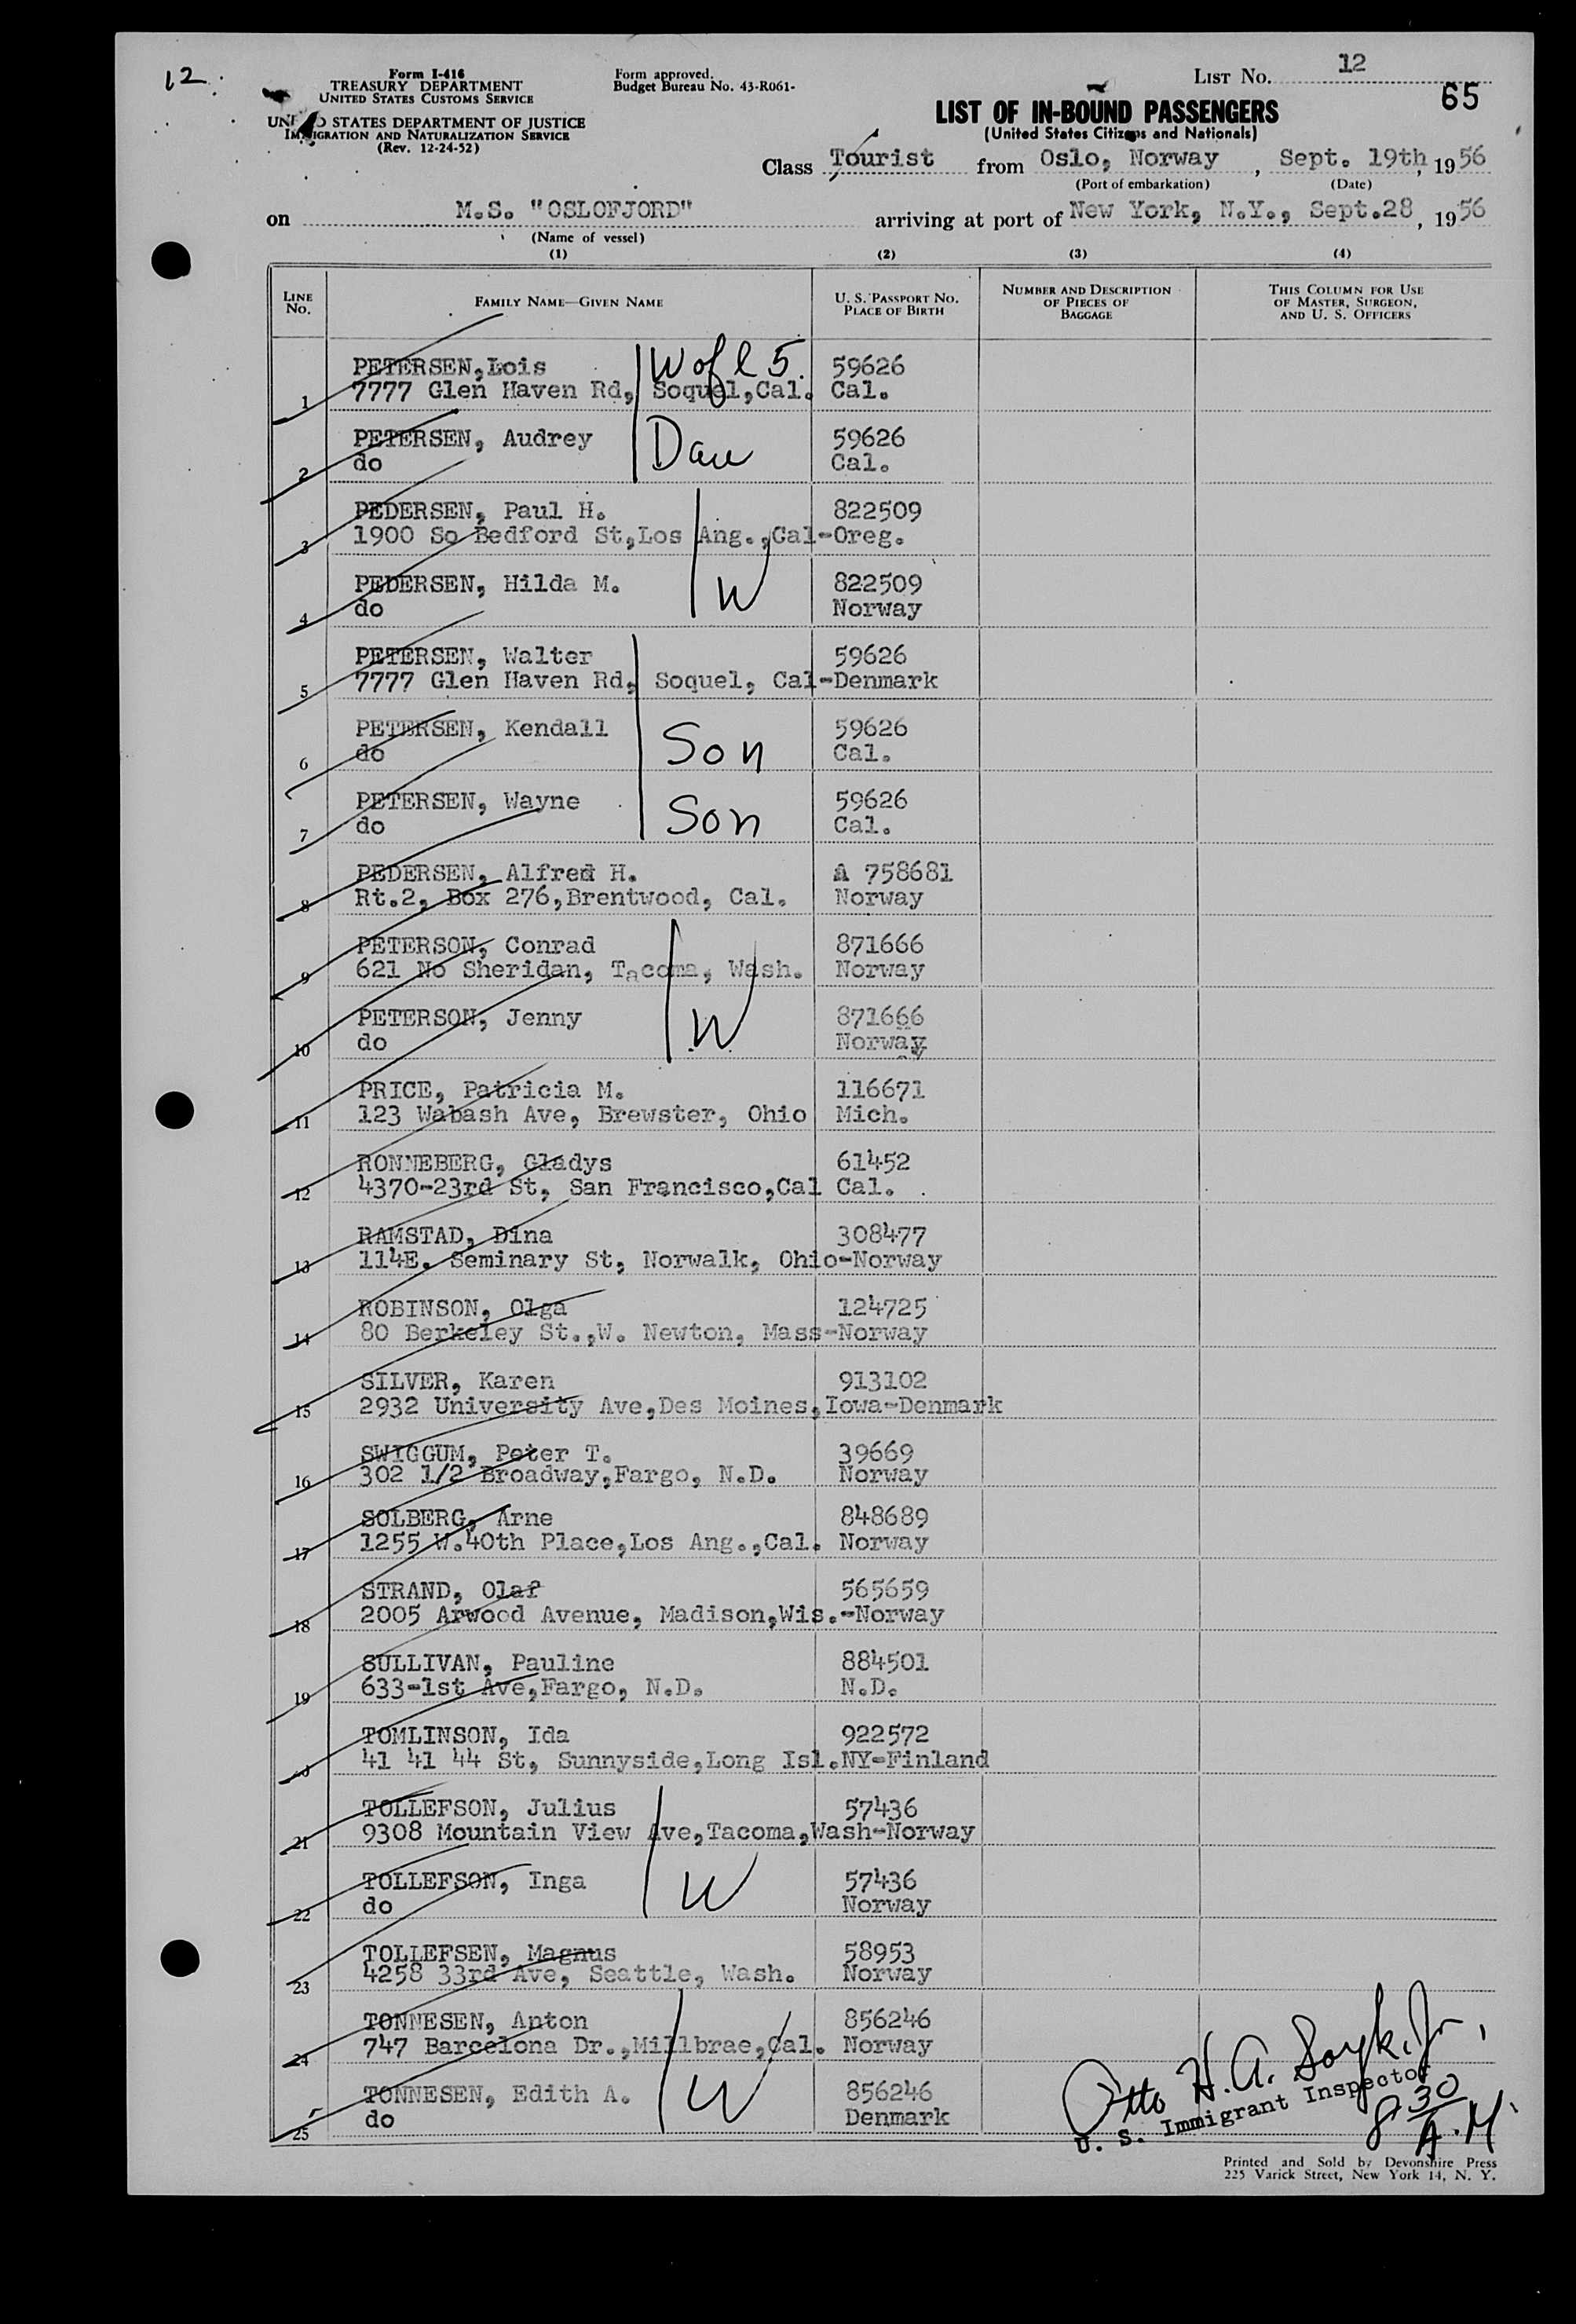 12
Form I-416
TREASURY DEPARTMENT
UNITED STATES CUSTOMS SERVICE
STATES DEPARTMENT OF JUSTICE
IMMIGRATION AND NATURALIZATION SERVICE
(Rev. 12-24-52)
Form approved.
Budget Bureau No. 43-R061-
LIST NO. 12
65
LIST OF IN-BOUND PASSENGERS
(United States Citizens and Nationals)
Class Tourist from Oslo, Norway, Sept. 19th, 1956
(Port of embarkation) (Date)
on M.S. "OSLOFJORD" arriving at port of New York, N.Y., Sept.28, 1956
(Name of vessel)
(1) (2) (3) (4)
LINE No. FAMILY NAME—GIVEN NAME U. S. PASSPORT NO. PLACE OF BIRTH NUMBER AND DESCRIPTION OF PIECES OF BAGGAGE THIS COLUMN FOR USE OF MASTER, SURGEON, AND U. S. OFFICERS
PETERSEN,Lois W of l 5. 59626
1 7777 Glen Haven Rd, Soquel,Cal. Cal.
PETERSEN, Audrey Dau 59626
2 do Cal.
PEDERSEN, Paul H. 822509
3 1900 So Bedford St,Los Ang.,Cal-Oreg.
PEDERSEN, Hilda M. W 822509
4 do Norway
PETERSEN, Walter 59626
5 7777 Glen Haven Rd, Soquel, Cal-Denmark
PETERSEN, Kendall Son 59626
6 do Cal.
PETERSEN, Wayne Son 59626
7 do Cal.
PEDERSEN, Alfred H. A 758681
8 Rt.2, Box 276,Brentwood, Cal. Norway
PETERSON, Conrad 871666
9 621 No Sheridan, Tacoma, Wash. Norway
PETERSON, Jenny W 871666
10 do Norway
PRICE, Patricia M. 116671
11 123 Wabash Ave, Brewster, Ohio Mich.
RONNEBERG, Gladys 61452
12 4370-23rd St, San Francisco,Cal Cal.
RAMSTAD, Dina 308477
13 114E. Seminary St, Norwalk, Ohio-Norway
ROBINSON, Olga 124725
14 80 Berkeley St.,W. Newton, Mass-Norway
SILVER, Karen 913102
15 2932 University Ave,Des Moines,Iowa-Denmark
SWIGGUM, Peter T. 39669
16 302 1/2 Broadway,Fargo, N.D. Norway
SOLBERG, Arne 848689
17 1255 W.40th Place,Los Ang.,Cal. Norway
STRAND, Olaf 565659
18 2005 Arwood Avenue, Madison,Wis.-Norway
SULLIVAN, Pauline 884501
19 633-1st Ave,Fargo, N.D. N.D.
TOMLINSON, Ida 922572
20 41 41 44 St, Sunnyside,Long Isl.NY-Finland
TOLLEFSON, Julius 57436
21 9308 Mountain View Ave,Tacoma,Wash-Norway
TOLLEFSON, Inga W 57436
22 do Norway
TOLLEFSEN, Magnus 58953
23 4258 33rd Ave, Seattle, Wash. Norway
TONNESEN, Anton 856246
24 747 Barcelona Dr.,Millbrae,Cal. Norway
TONNESEN, Edith A. W 856246
25 do Denmark
Otto H. A. Jr.
U. S. Immigrant Inspector
8 30 A.M.
Printed and Sold by Devonshire Press
225 Varick Street, New York 14, N. Y.